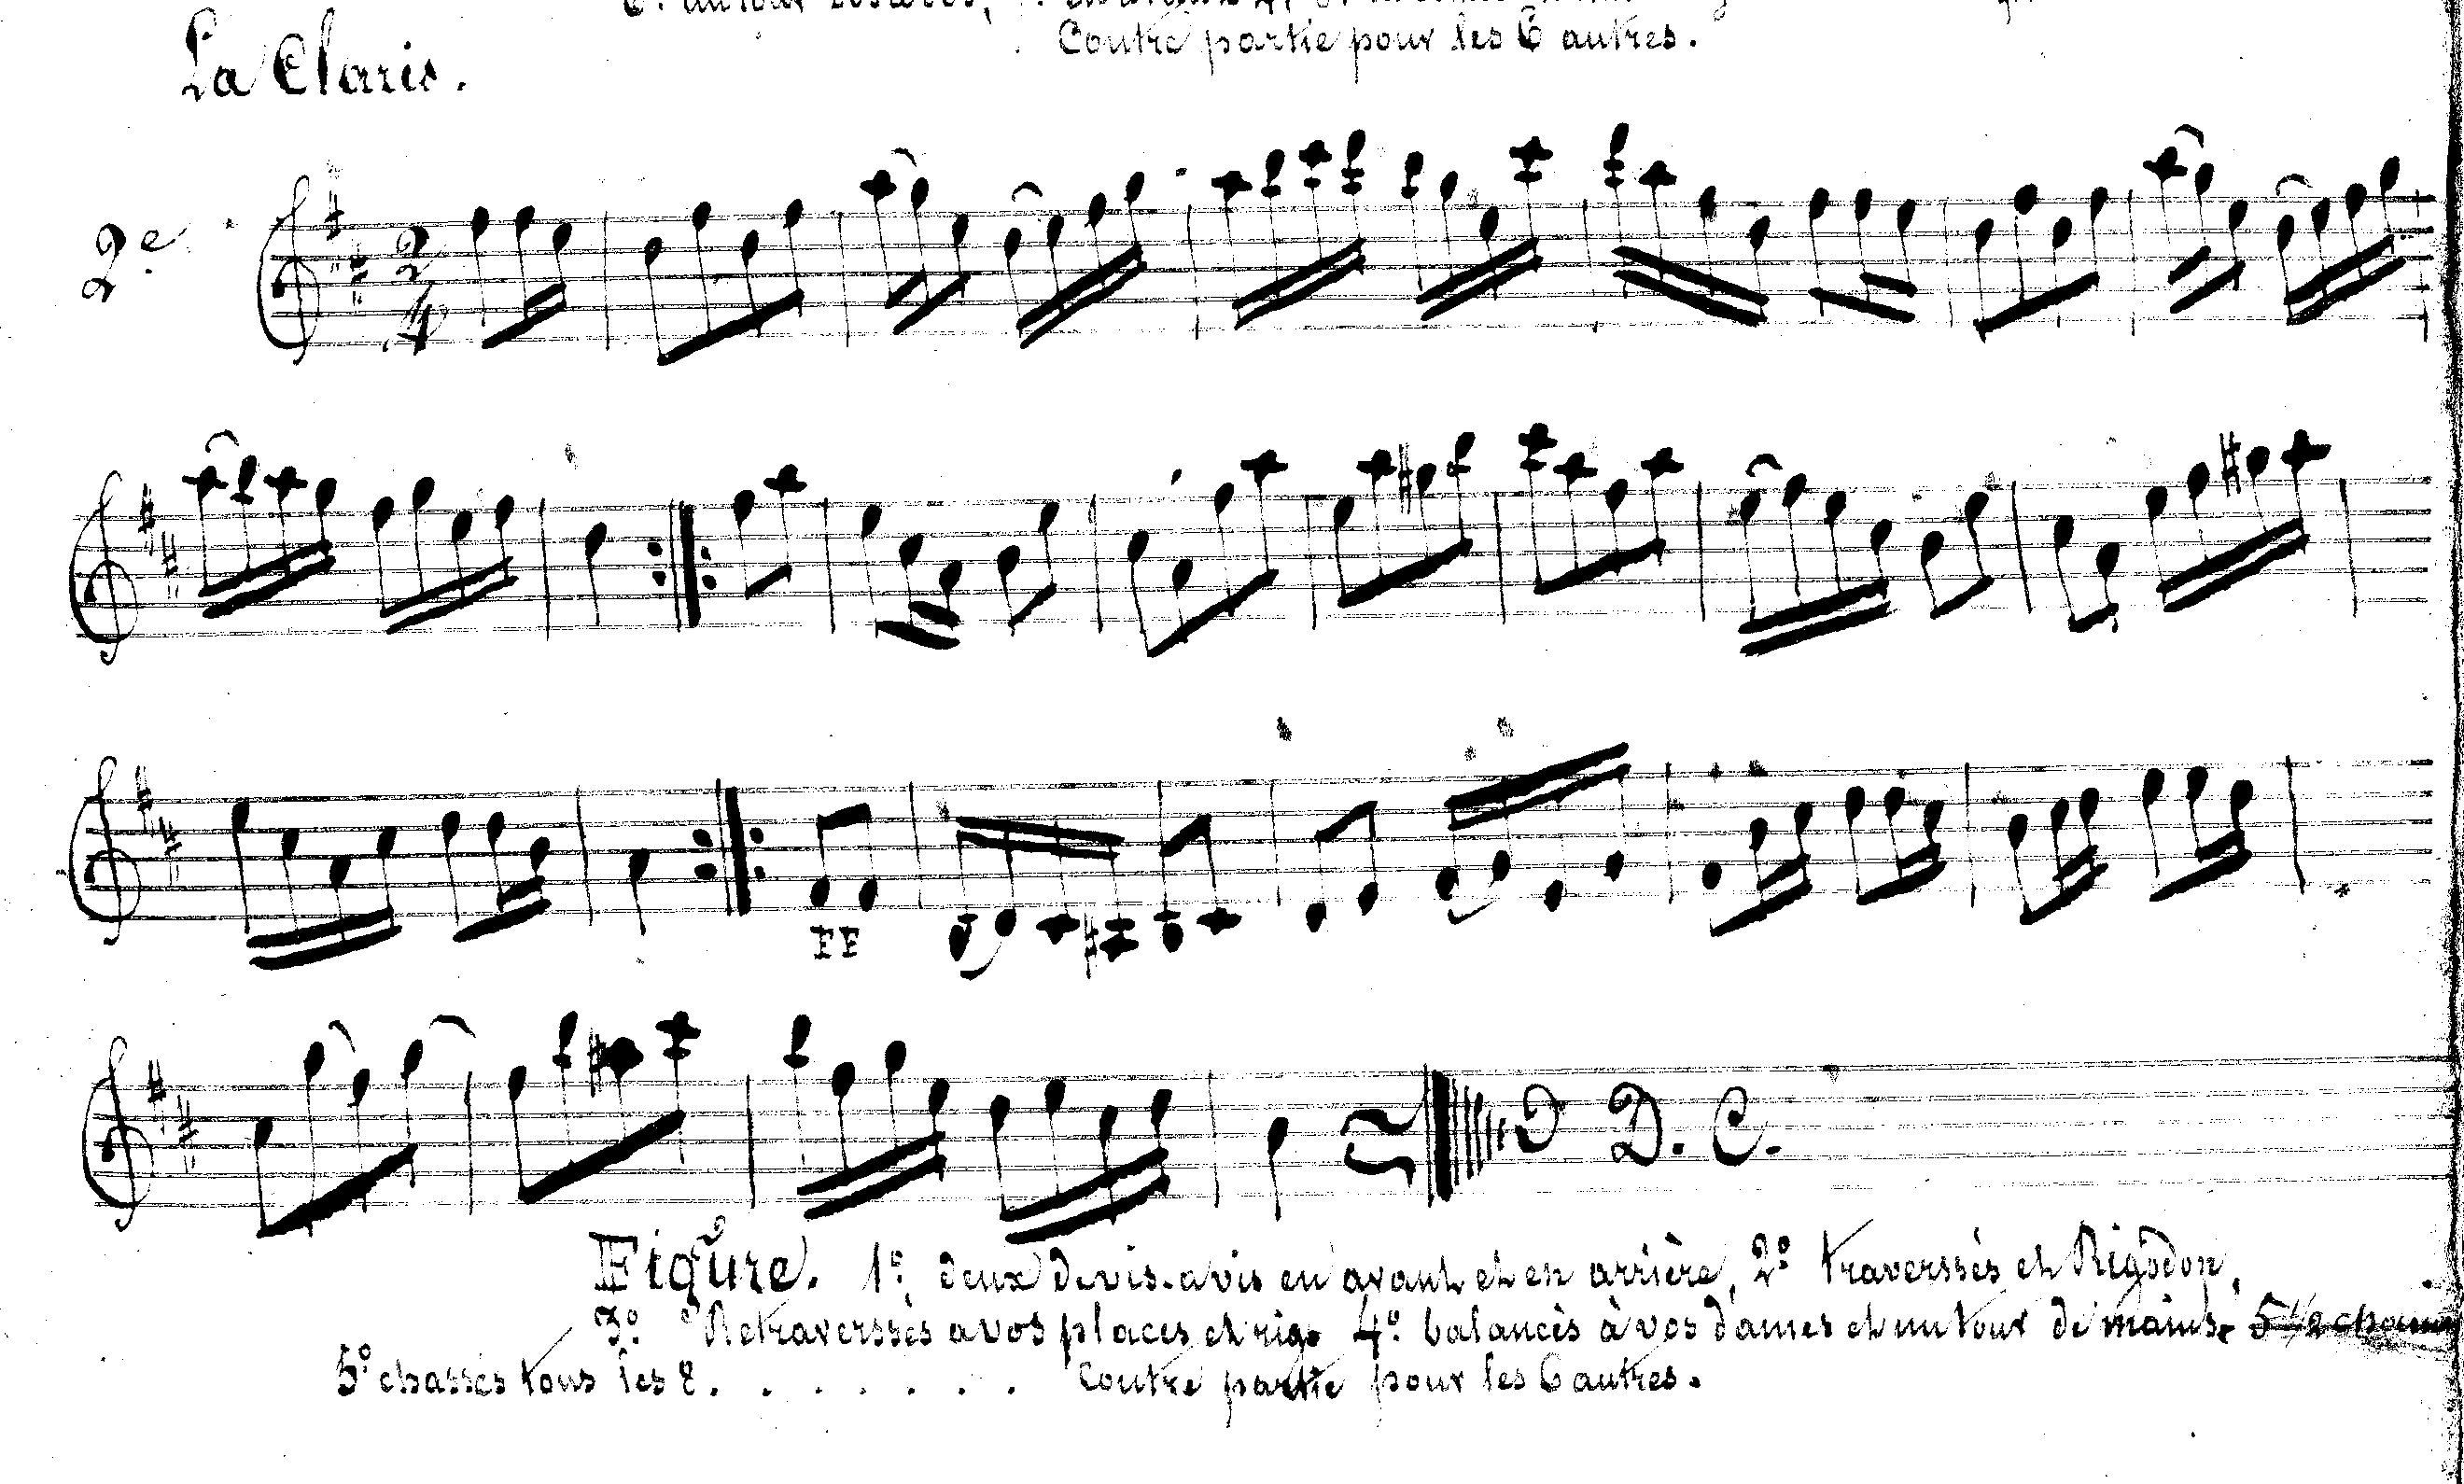 Contre partie pour les 6 autres.
La Claris.
2e
2
4
FF
D. C.
Figure. 1º deux de vis-avis en avant et en arrière, 2º traverssés et Rigodon,
3º Retraverssés a vos places et rig. 4º balancés à vos dames et un tour de mains.
5º chassés tous les 8. . . . . . . . Contre partie pour les 6 autres.